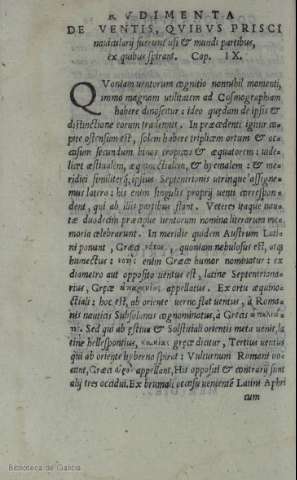 RVDIMENTA
DE VENTIS, QVIBVS PRISCI
nauiculatores fuerunt usi & mundi partibus,
ex quibus spirant. Cap. IX.
QVoniam uentorum cognitio nonnihil momenti,
immo magnam utilitatem ad Cosmographiam
habere dinoscetur: ideo quędam de ipsis &
distinctione eorum trademus. In præcedenti igitur ca
pite ostensum est, solem habere triplicem ortum & oc
casum secundum binos tropicos & æquatorem: uide-
licet æstiualem, æquinoctialem, & hyemalem: & me
ridiei similiterq́; ipsius Septentrionis utrinque assigna
mus latera: his enim singulis proprij uenti correspon
dent, qui ab illis partibus flant. Veteres itaque nau-
tæ duodecim præcipue uentorum nomina literarum me
moria celebrarunt. In meridie quidem Austrum Lati
ni ponunt, Græci νότον, quoniam nebulosus est, atq;
humectus: enim Græce humor nominatur: ex
diametro aut opposito uentus est, latine Septentriona-
rius, Græce appellatus. Ex ortu æquino-
ctiali: hoc est, ab oriente uerno flat uentus, à Roma-
nis nauticis Subsolanus cognominatus, à Græcis
Sed qui ab æstiuo & Solstitiali orientis meta uenit, la
tine hellespontius, græce dicitur, Tertius uentus
qui ab oriente hyberno spirat: Vulturnum Romani uo-
cant, Græci appellant, His oppositi & contrarij sunt
alij tres occidui. Ex brumali occasu uenientē Latini Aphri
cum
Biblioteca de Ciencia